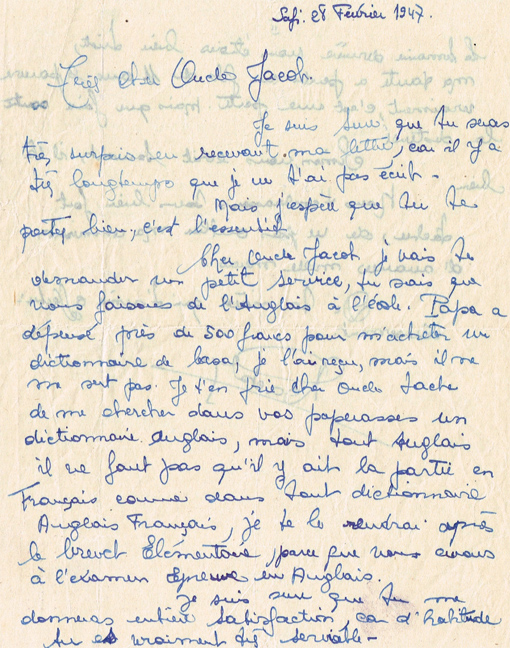 Safi. 28 Février 1947.
Très cher Oncle Jacob.
Je suis sure que tu seras
très surpris en recevant ma lettre, car il y a
très longtemps que je ne t'ai pas écrit -
Mais j'espère que tu te
portes bien, c'est l'essentiel.
Cher Oncle Jacob, je vais te
demander un petit service, tu sais que
nous faisons de l'Anglais à l'école. Papa a
dépensé près de 500 francs pour m'acheter un
dictionnaire de, je l'ai reçu, mais il ne
me sert pas. Je t'en prie cher Oncle tache
de me chercher dans vos paperasses un
dictionnaire Anglais, mais tout Anglais
il ne faut pas qu'il y ait la partie en
Français comme dans tout dictionnaire
Anglais Français, je te le rendrai après
le brevet Elémentaire, parce que nous avons
à l'examen épreuve en Anglais.
Je suis sure que tu me
donneras entière satisfaction, car d'habitude
tu es vraiment très serviable -